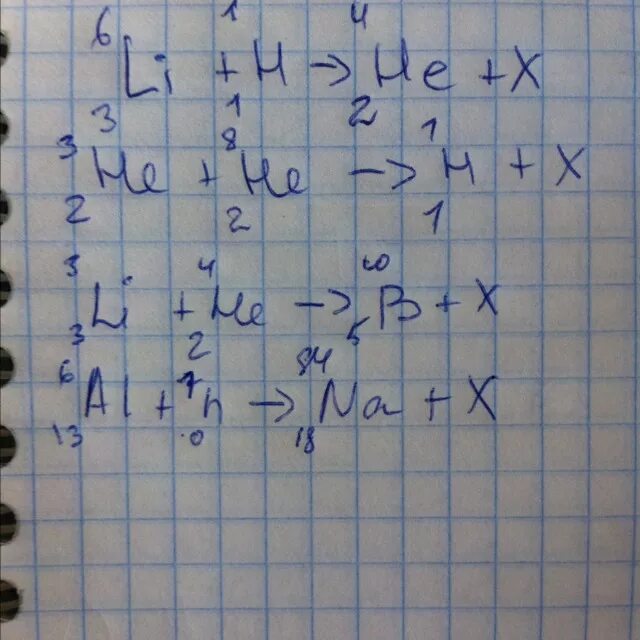 ⁶₃Li + ¹₁H → ⁴₂He + X
³₂He + ⁸₂He → ¹₁H + X
³₃Li + ⁴₂He → ¹⁰₅B + X
⁶₁₃Al + ¹₀n → ⁸⁴₁₈Na + X